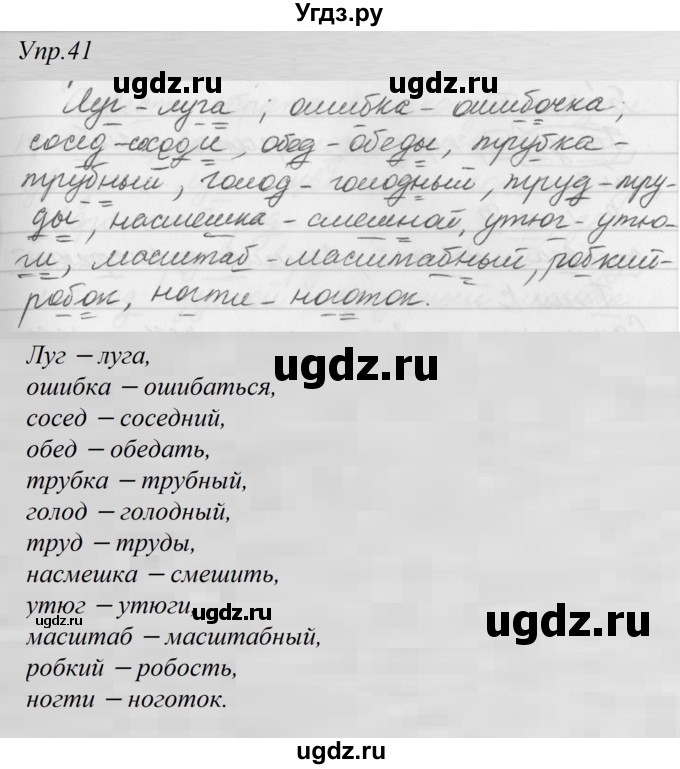 Угдз.ру
Упр.41
ugdz.ru ugdz.ru
Луг - луга ; ошибка - ошибочка,
сосед - соседи, обед - обеды, трубка -
трубный, голод - голодный, труд - тру-
ды, насмешка - смешной, утюг - утю-
ги, масштаб - масштабный, робкий -
робок, ногти - ноготок.
Луг – луга,
ugdz.ru
ошибка – ошибаться,
сосед – соседний,
обед – обедать,
трубка – трубный,
голод – голодный,
труд – труды,
насмешка – смешить,
утюг – утюги,
ugdz.ru
ugdz.ru
ugdz.ru
масштаб – масштабный,
робкий – робость,
ногти – ноготок.
ugdz.ru